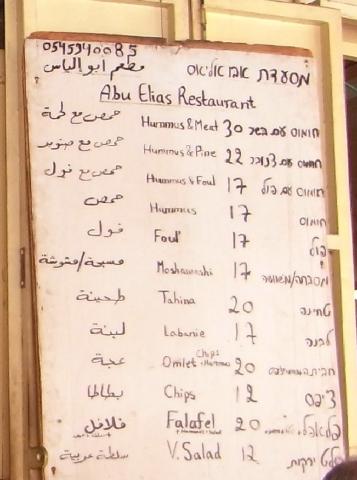 0545940085
مطعم ابو الياس מסעדת אבו אליאס
Abu Elias Restaurant
حمص مع لحمة Hummus & Meat 30 חומוס עם בשר
حمص مع صنوبر Hummus & Pine 22 חומוס עם צנובר
حمص مع فول Hummus & Foul 17 חומוס עם פול
حمص Hummus 17 חומוס
فول Foul 17 פול
مسبحة/فتوشة 17
طحينة Tahina 20 טחינה
لبنة Labanie 17 לבנה
عجة Omlet Chips + Hummus 20 חביתה
بطاطا Chips 12 ציפס
فلافل Falafel 20 פלאפל
سلطة عربية V. Salad 12 סלט ירקות